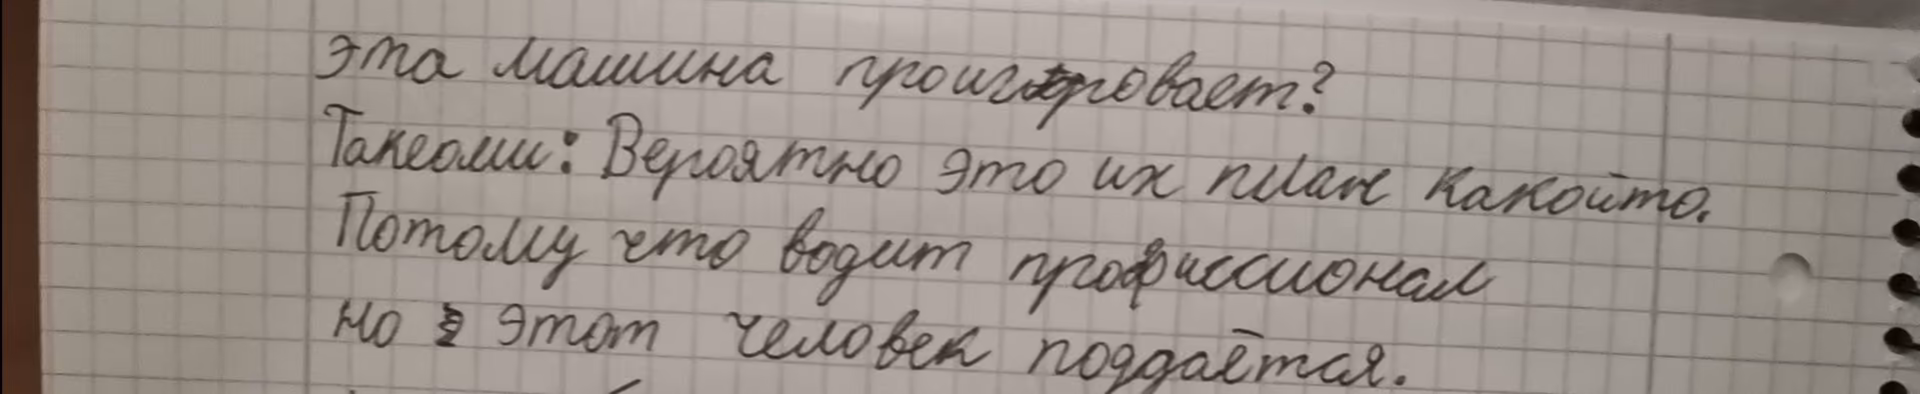 эта машина проигровает?
Такеоми: Вероятно это их план какойто.
Потому что водит профиссионал
но этот человек поддаётся.